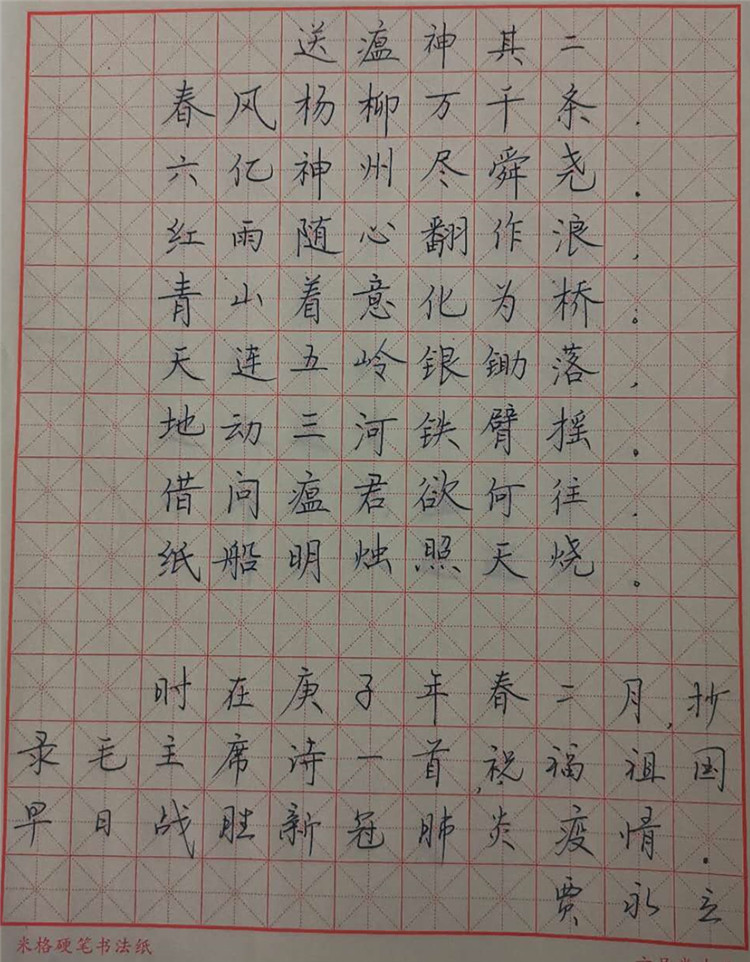 送瘟神其二
春风杨柳万千条.
六亿神州尽舜尧.
红雨随心翻作浪,
青山着意化为桥。
天连五岭银锄落,
地动三河铁臂摇。
借问瘟君欲何往.
纸船明烛照天烧。
时在庚子年春二月,抄
录毛主席诗一首,祝福祖国
早日战胜新冠肺炎疫情.
贾永立
米格硬笔书法纸